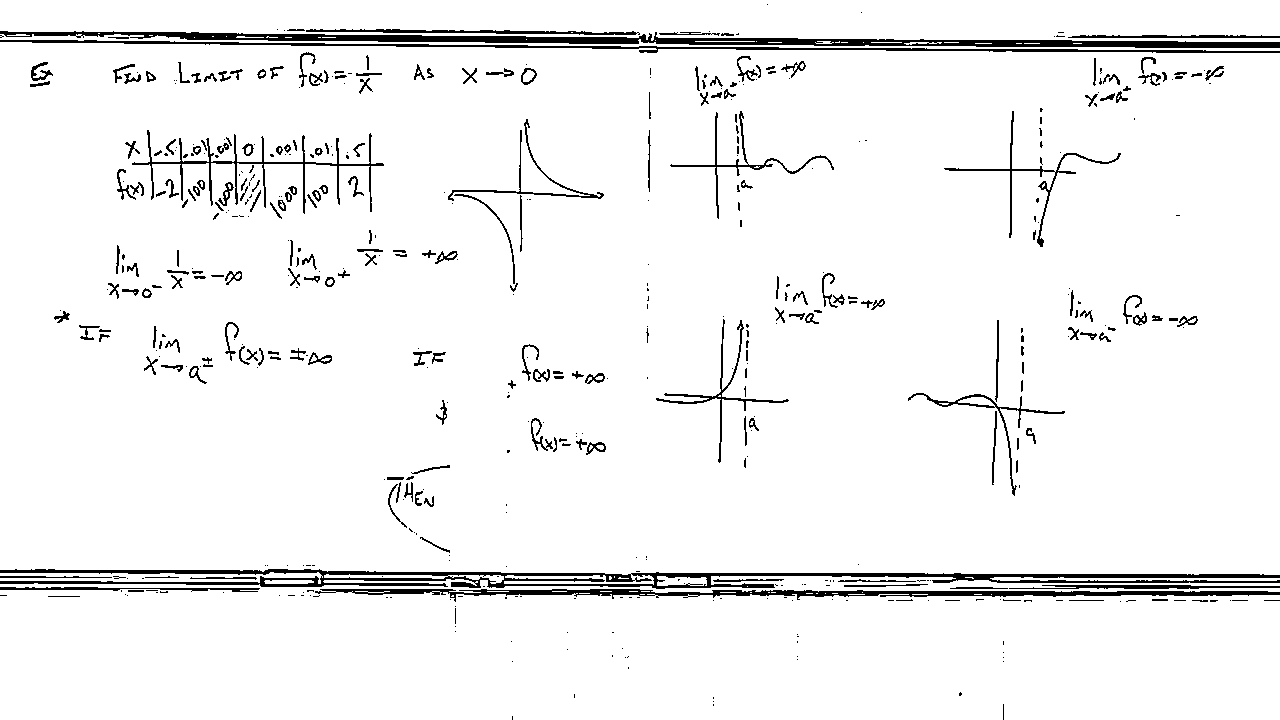 Ex FIND LIMIT OF f(x) = 1/x AS x → 0
x | -.5 | -.01 | -.001 | 0 | .001 | .01 | .5
f(x) | -2 | -100 | -1000 | | 1000 | 100 | 2
lim x→0⁻ 1/x = -∞ lim x→0⁺ 1/x = +∞
* IF lim x→a± f(x) = ±∞
IF f(x) = +∞
&
f(x) = +∞
THEN
lim x→a⁺ f(x) = +∞
a
lim x→a⁺ f(x) = -∞
a
lim x→a⁻ f(x) = +∞
a
lim x→a⁻ f(x) = -∞
a